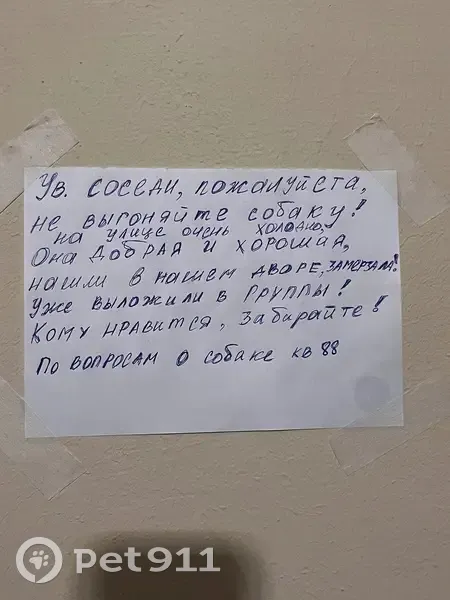 Ув. соседи, пожалуйста,
не выгоняйте собаку!
на улице очень холодно,
Она добрая и хорошая,
нашли в нашем дворе, замерзала!
Уже выложили в группы!
Кому нравится, забирайте!
По вопросам о собаке кв 88
pet911